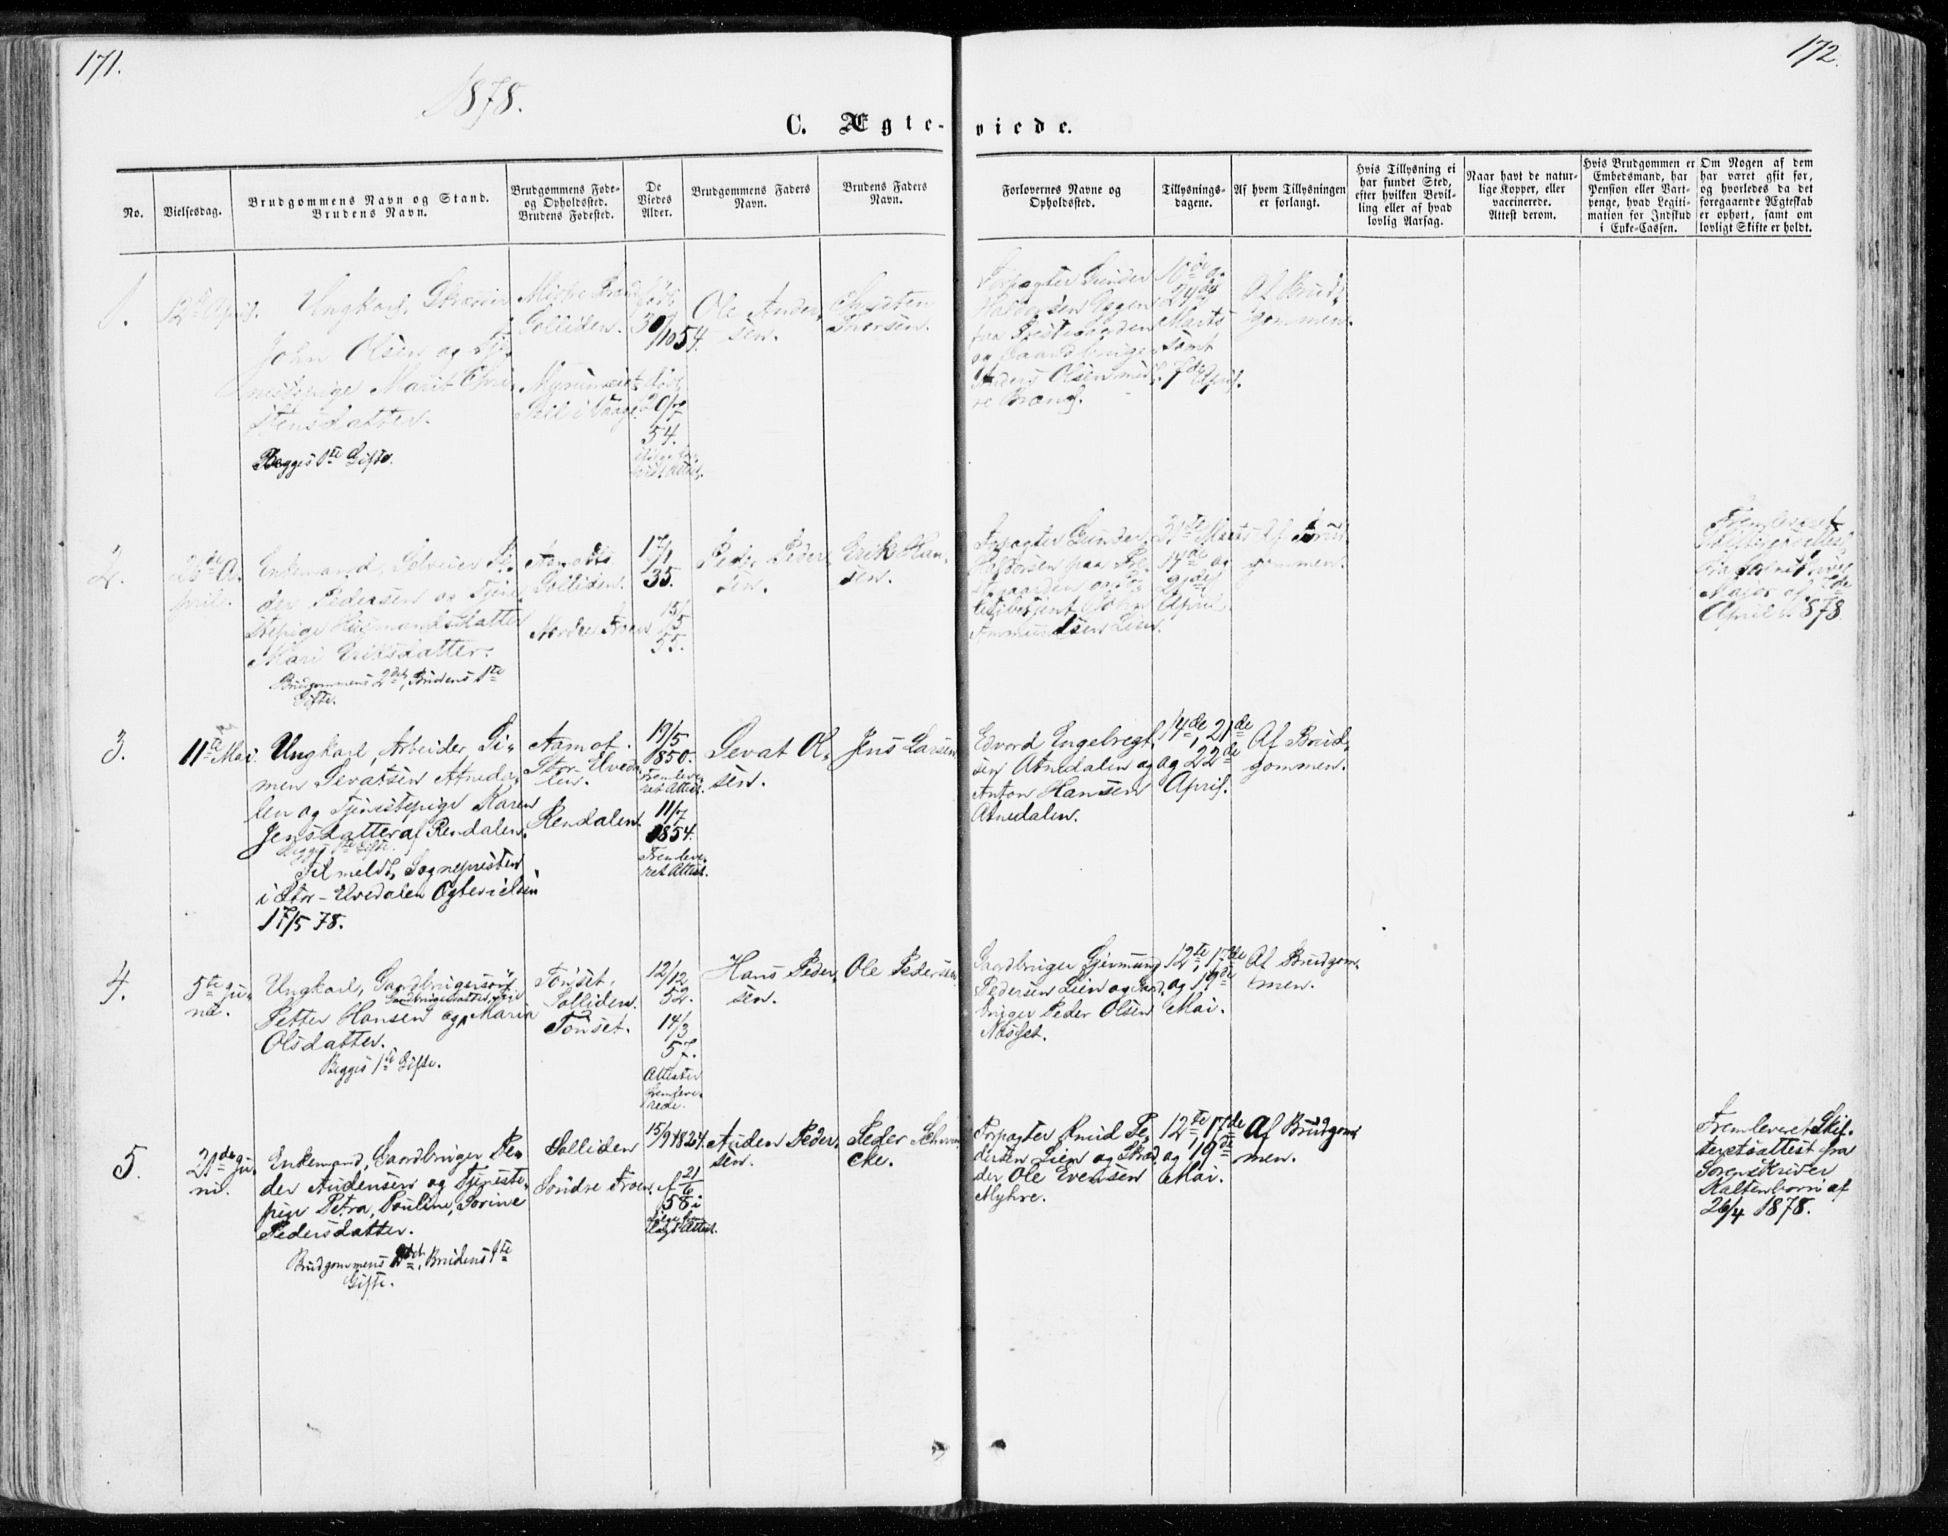 171.
172.
1878.
C. Ægte-viede.
No.
Vielsesdag.
Brudgommens Navn og Stand.
Brudens Navn.
Brudgommens Føde-
og Opholdssted.
Brudens Fødested.
De
Viedes
Alder.
Brudgommens Faders
Navn.
Brudens Faders
Navn.
Forlovernes Navne og
Opholdssted.
Tillysnings-
dagene.
Af hvem Tillysningen
er forlangt.
Hvis Tillysning ei
har fundet Sted,
efter hvilken Bevil-
ling eller af hvad
lovlig Aarsag.
Naar havt de natur-
lige Kopper, eller
vaccinerede.
Attest derom.
Hvis Brudgommen er
Embedsmand, har
Pension eller Vart-
penge, hvad Legiti-
mation for Indskud
i Enke-Cassen.
Om Nogen af dem
har været gift før,
og hvorledes da det
foregaaende Ægteskab
er ophørt, samt om
lovligt Skifte er holdt.
1.
12te April.
Ungkarl,
John Olsen og Tje-
nestepige Marit Chri-
stensdatter.
Begges 1te Gifte.
Solliden.
30/10 54.
20/7
54.
Ole Ander-
sen.
Christen
Iversen.
Forpagter Gunder
Haldorsen
paa Prestegaarden
og Gaardbruger
Anders Olsen
24de
Marts
samt
7de April.
Af Brud-
gommen.
2.
26de A-
pril.
Enkemand, Selveier Pe-
der Pedersen og Tjene-
stepige Husmandsdatter
Mari Eriksdatter.
Brudgommens 2det, Brudens 1te
Gifte.
Solliden.
Nordre Froen
17/1
35.
15/5
55.
Peder Peder-
sen.
Erik Han-
sen.
Forpagter Gunder
Haldorsen paa Pre-
stegaarden og
John
Ammundsen Lien.
31te Marts
14de og
22de
April.
Af Brud-
gommen.
Fremleveret
April 1878.
3.
11te Mai.
Ungkarl, Arbeider Si-
men Sevatsen Atneda-
len og Tjenestepige Karen
Jensdatter af Rendalen.
Begges 1te Gifte.
Tilmeldt Sognepresten
i Stor-Elvedalen Ægtevielsen
17/5 78.
Aamot.
Stor-Elveda-
len.
Rendalen.
19/5
1850.
Fremleve-
ret Attest.
11/7
1854.
Fremleve-
ret Attest.
Sevat Ol-
sen.
Jens Larsen
Edvard Engelregt-
sen Atnedalen og
Anton Hansen
Atnedalen.
14de, 21de
og 22de
April.
Af Brud-
gommen.
4.
5te Ju-
ni.
Ungkarl, Gaardbrugersøn
Petter Hansen og Gaardbrugerdatter, Pige Maria
Olsdatter.
Begges 1te Gifte.
Tönset.
Solliden.
Tönset.
12/12
52.
14/3
57.
Attester
fremleve-
rede.
Hans Peder-
sen.
Ole Pedersen
Gaardbruger Gjermund
Pedersen Lien og Gaard-
bruger Peder Olsen
Næsset.
12te, 17de
og 19de
Mai.
Af Brudgom-
men.
5.
21de Ju-
ni.
Enkemand, Gaardbruger Pe-
der Audensen og Tjeneste-
pige Petra, Pauline, Sorine
Pedersdatter.
Brudgommens 2det, Brudens 1te
Gifte.
Solliden
Söndre Froen.
15/9 1824.
21/6
58 i
Auden Peder-
sen.
Peder Schven-
cke.
Forpagter Knud Pe-
dersen Lien og Skræd-
der Ole Evensen
Myhre.
12te, 17de
og 19de
Mai.
Af Brudgom-
men.
Fremleveret Skif-
teretsattest fra
Sorenskriver
Kaltenborn af
26/4 1878.